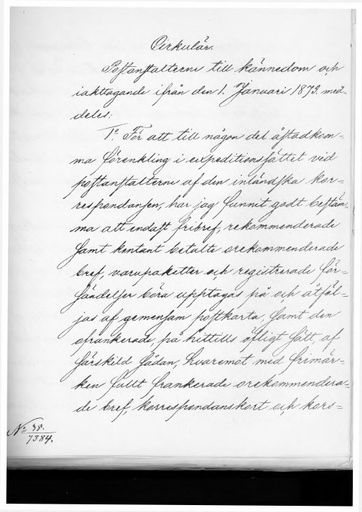 Cirkulär.
Postanstalterne till kännedom och
iakttagande ifrån den 1. Januari 1873. med-
deles:
1º. För att till någon del åstadkom-
ma förenkling i expeditionssättet vid
postanstalterne af den inländska kor-
respondansen, har jag funnit godt bestäm-
ma att endast fribref, rekommenderade
samt kontant betalte orekommenderade
bref, varupaketter och registrerade för-
sändelser böra upptagas på och åtföl-
jas af gemensam postkarta, samt den
ofrankerade, på hittills öfligt sätt, af
särskild sådan, hvaremot med frimär-
ken fullt frankerade orekommendera-
de bref, korrespondanskort och kors-
No 38.
7384.